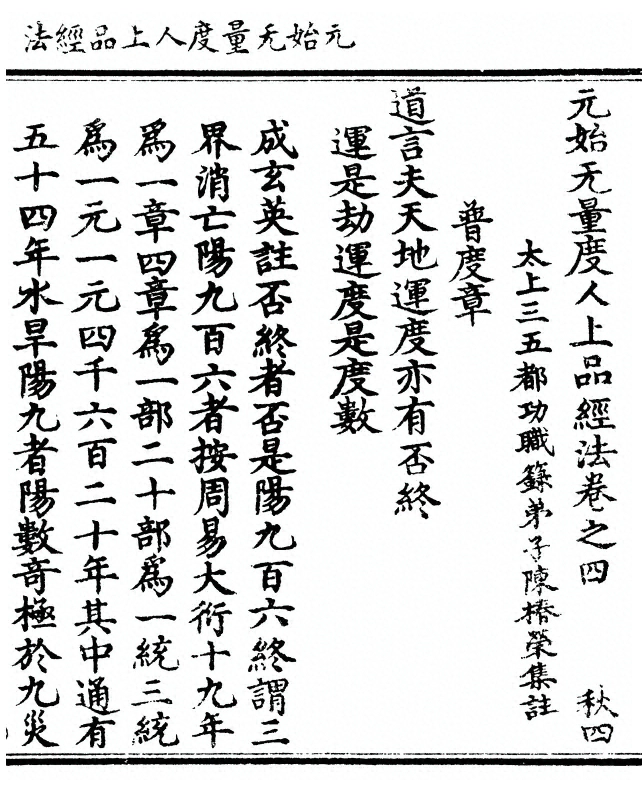 元始无量度人上品經法
元始无量度人上品經法卷之四 秋四
太上三五都功職籙弟子陳椿榮集註
普度章
道言夫天地運度亦有否終
運是劫運度是度數
成玄英註否終者否是陽九百六終謂三
界消亡陽九百六者按周易大衍十九年
爲一章四章爲一部二十部爲一統三統
爲一元一元四千六百二十年其中通有
五十四年水旱陽九者陽數奇極於九災